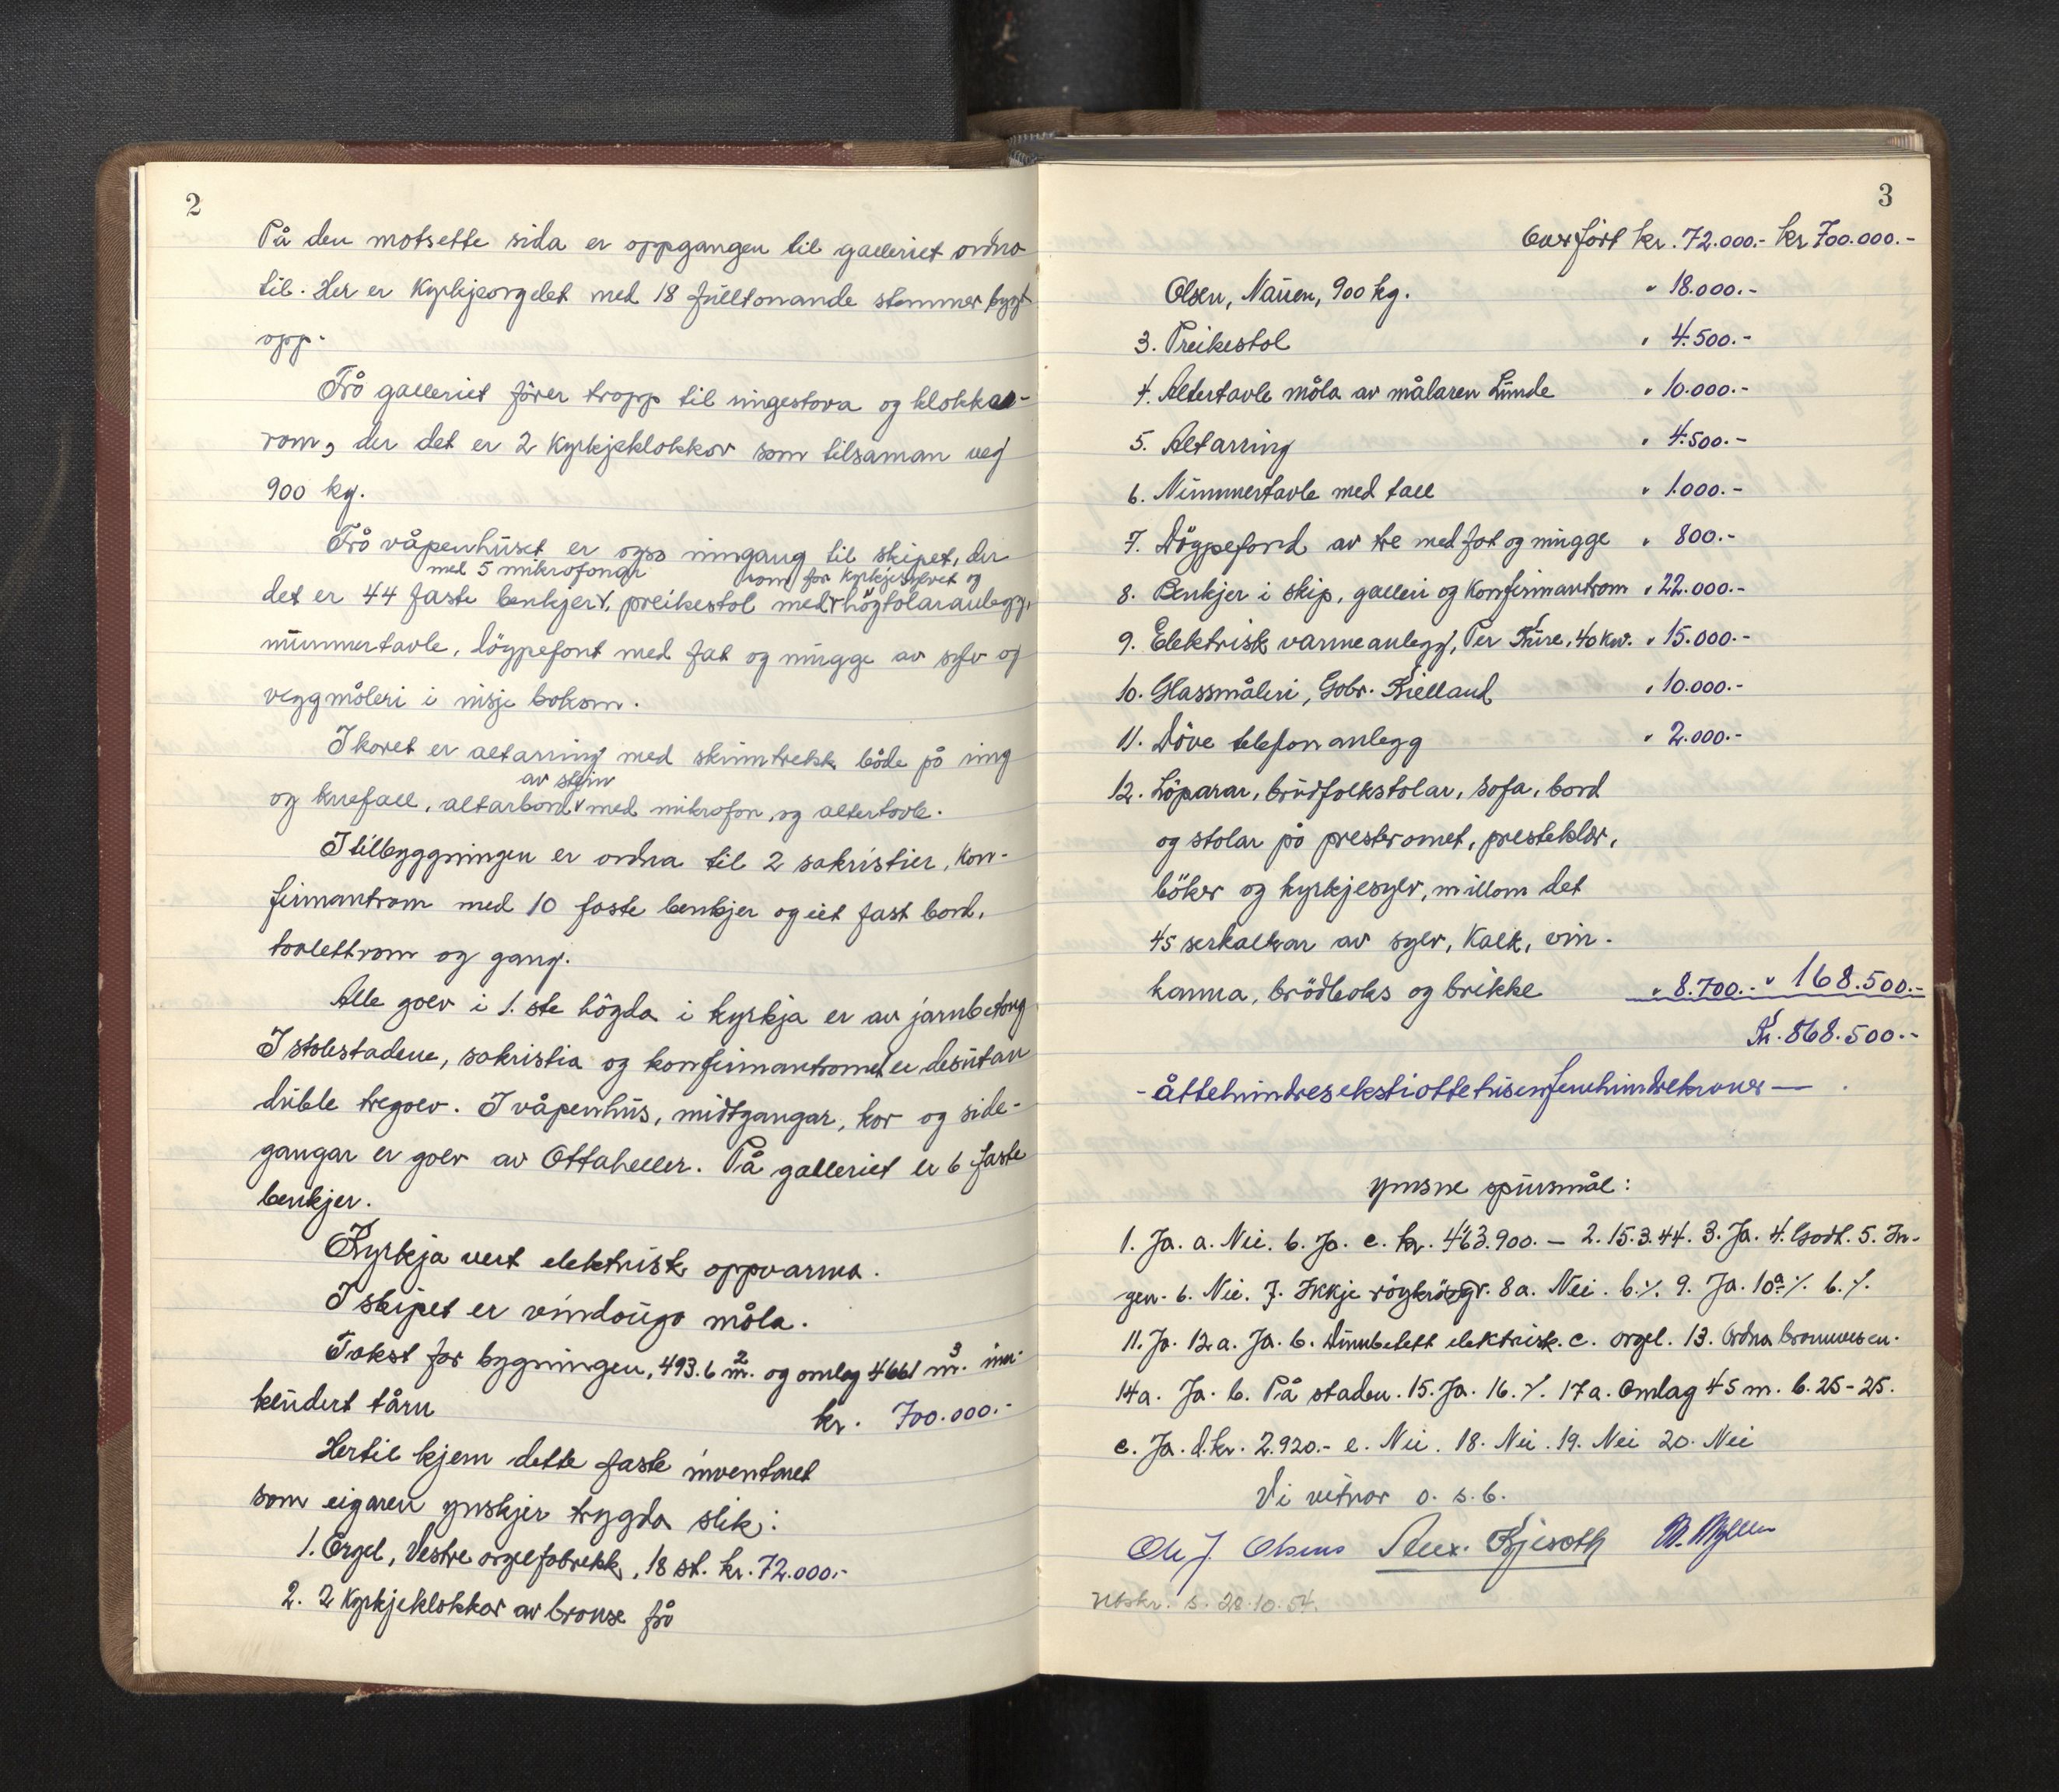 2
På den motsette sida er oppgangen til galleriet ordna
til. Her er Kyrkjeorgelet med 18 fulltonande stemmer bygt
opp.
Frå galleriet fører tropp til ringestova og klokka-
rom, der det er 2 Kyrkjeklokkor som tilsaman veg
900 kg.
Frå våpenhuset er ogso inngang til skipet, der
med 5 mikrofongr rom for kyrkjesylvet og
det er 44 faste benkjer, preikestol med högtolaranlegg,
nummertavle, löypefont med fat og mugge av sylv og
veggmåleri i nisje bakom.
I koret er altarring med skinntrekk både på ring
av stein
og knefall, altarbord med mikrofon, og altertavle.
I tilbyggningen er ordna til 2 sakristier, Kon-
firmantrom med 10 faste benkjer og eit fast bord,
toalettrom og gang.
Alle golv i 1. ste högda i kyrkja er av jarnbetong
I stolestadene, sakristia og konfirmantromet er desutan
duble tregolv. I våpenhus, midtgangar, kor og side-
gangar er golv av Ottaheller. På galleriet er 6 faste
benkjer.
Kyrkja vert elektrisk oppvarma.
I skipet er vindauga måla.
Takst for bygningen, 493.6 m². og omlag 4661 m³. inn-
kludert tårn kr. 700.000.-
Hertil kjem dette faste inventaret
som eigaren ynskjer trygda slik:
1. Orgel, Vestre orgelfabrekk, 18 st. kr. 72.000.-
2. 2 Kyrkjeklokkor av bronse frå
3
Overført kr. 72.000.- kr 700.000.-
Olsen, Nauen, 900 kg. " 18.000.-
3. Preikestol " 4.500.-
4. Altertavle måla av målaren Lunde " 10.000.-
5. Altarring " 4.500.-
6. Nummertavle med tall " 1.000.-
7. Döypefond av tre med fat og mugge " 800.-
8. Benkjer i skip, galleri og Konfirmantrom " 22.000.-
9. Elektrisk varmeanlegg, Per Kure, 40 Kw. " 15.000.-
10. Glassmåleri, Gabr. Kielland " 10.000.-
11. Döve telefonanlegg " 2.000.-
12. Löparar, brudfolkstolar, sofa, bord
og stolar på presteromet, presteklær,
böker og kyrkjesylv, millom det
45 serkalkar av sylv, Kalk, vin-
kanna, brödboks og brikke " 8.700.- " 168.500.-
Kr. 868.500.-
- åttehundresekstiåttetusenfemhundrekroner —
Ymsne spursmål:
1. Ja. a. Nei. b. Ja. c. kr. 463.900. — 2. 15.3.44. 3. Ja. 4. Godt. 5. In-
gen. 6. Nei. 7. Ikkje röykrör. 8 a. Nei. b. ٪. 9. Ja. 10 a ٪. b. ٪.
11. Ja. 12 a. Ja. b. Dunbelett elektrisk. c. orgel. 13. Ordna brannvesen.
14 a. Ja. b. På staden. 15. Ja. 16. ٪. 17 a. Omlag 45 m. b. 25-25.
c. Ja. d. kr. 2.920.- e. Nei. 18. Nei. 19. Nei 20. Nei
Vi vitnar o. s. b.
Ole J. Olsens Alex. Kjesoth
Utskr. s. 28.10.54.